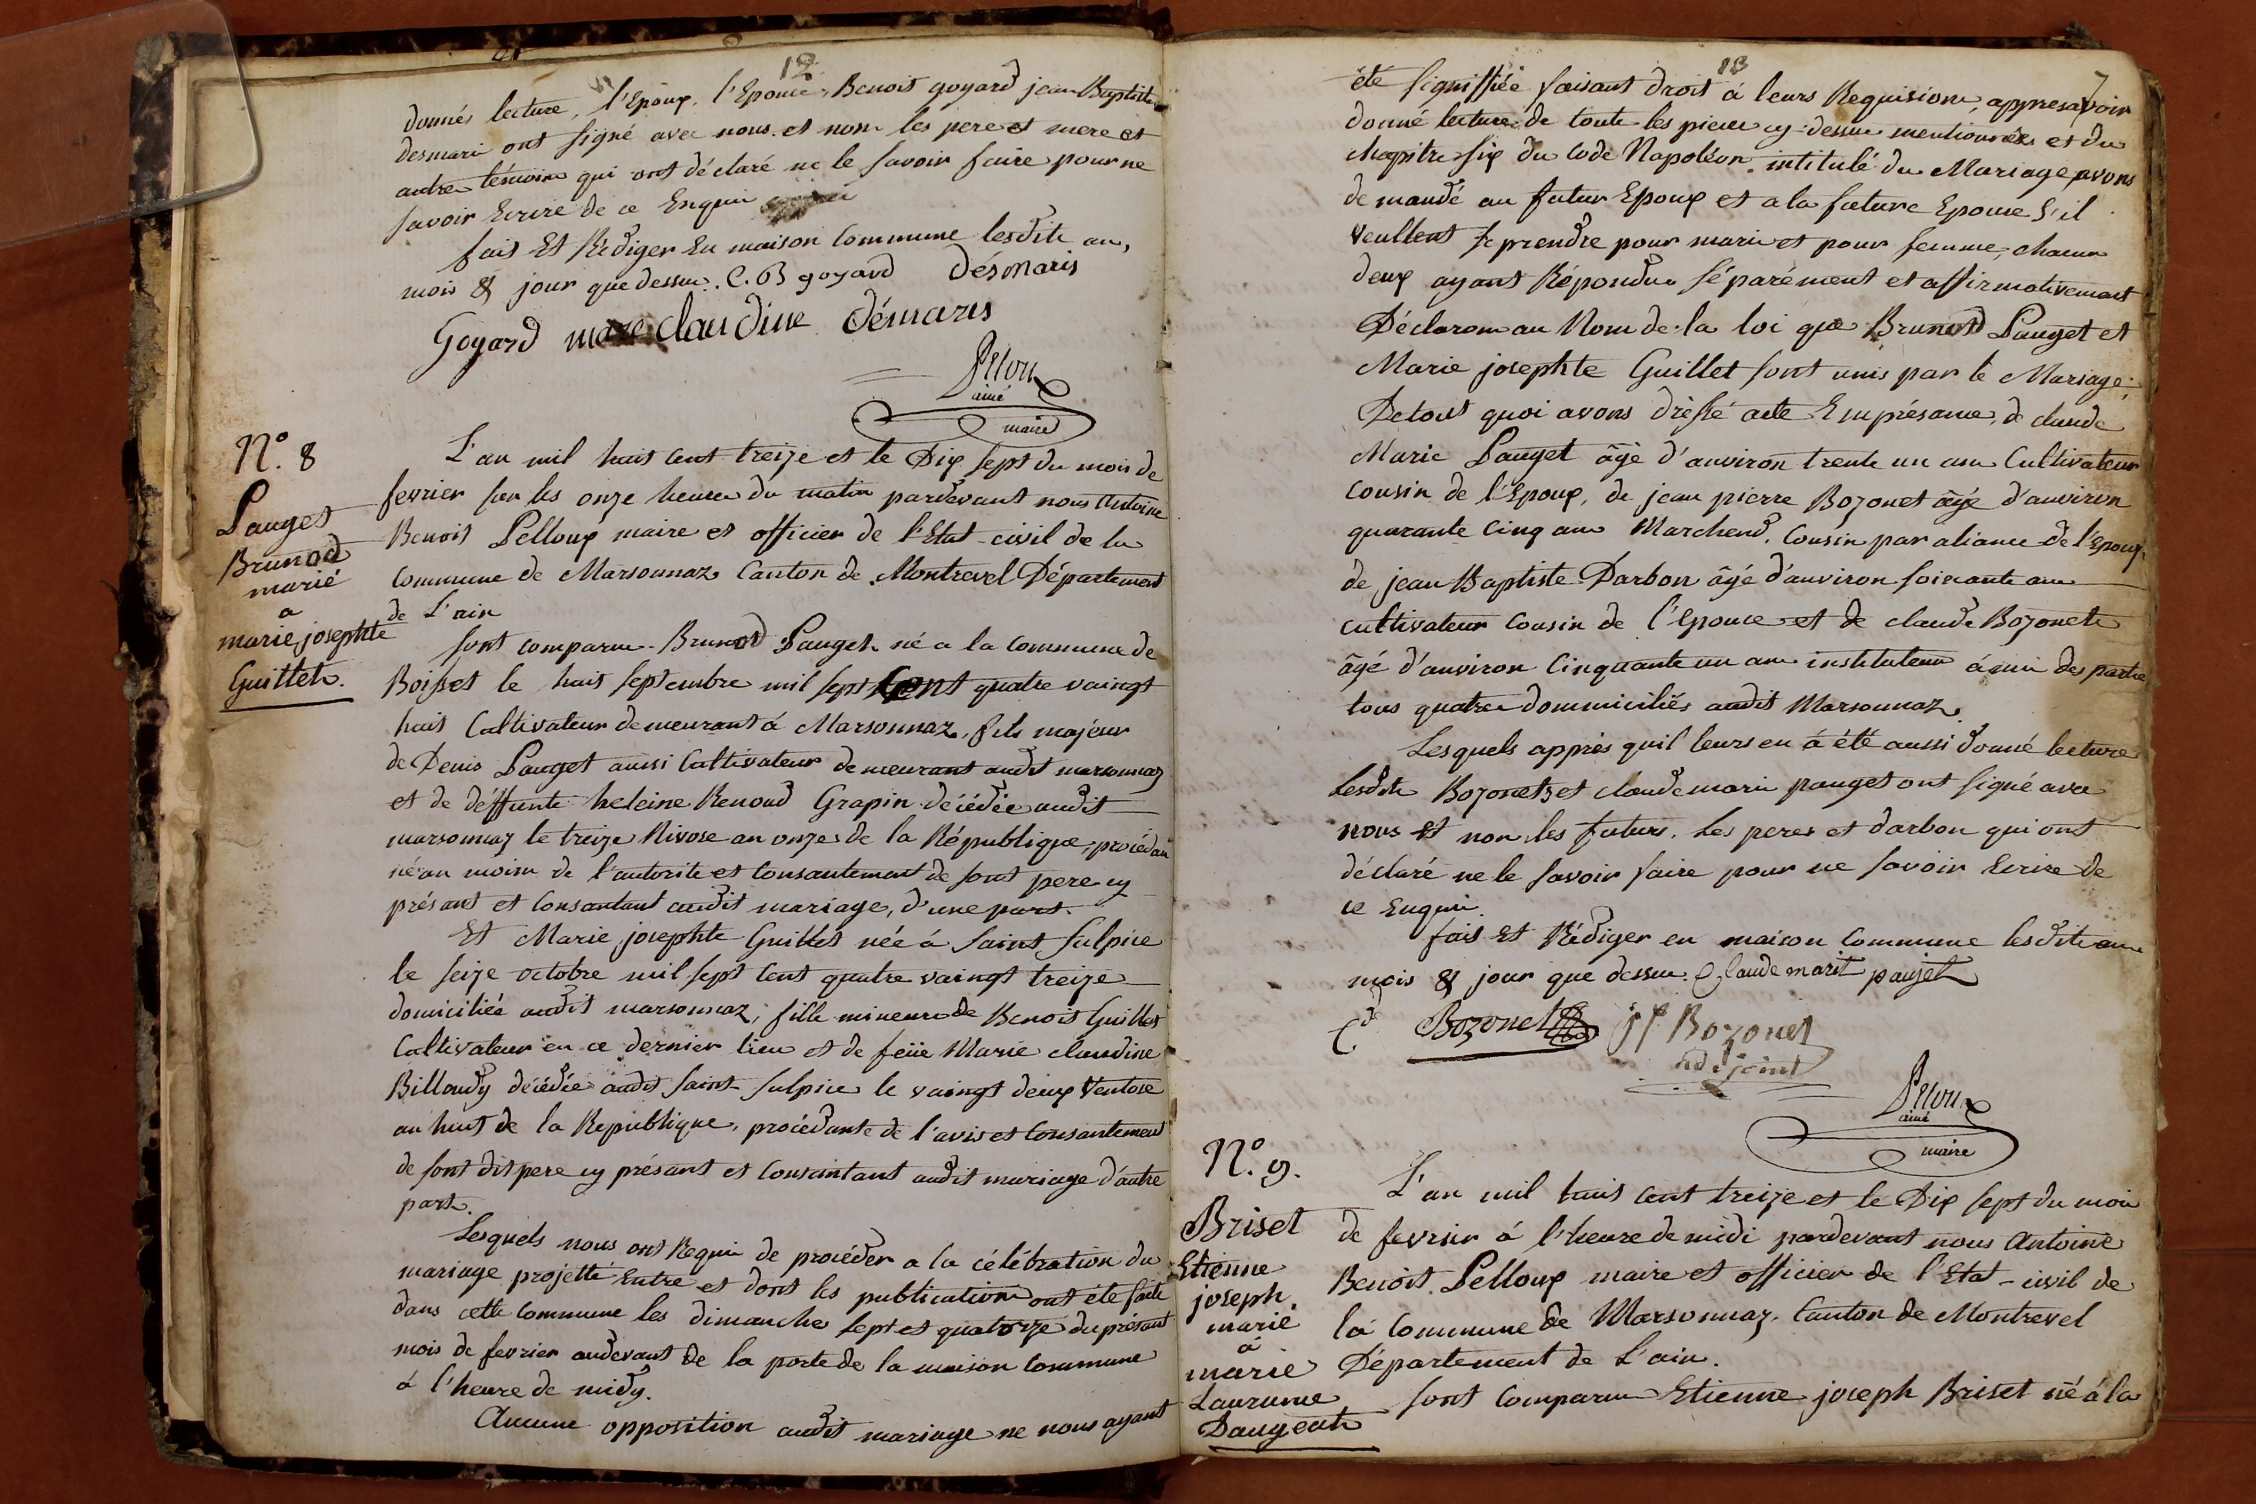 12
donnés lecture, l'Epoux, l'Epouse, Benoit goyard jean Baptiste
desmari ont signé avec nous et non les pere et mere et
autres témoins qui ont déclaré ne le savoir faire pour ne
savoir Ecrire de ce Enquis
fait Et Rédiger En maison Commune lesdits an,
mois & jour que dessus. C. B goyard Désmaris
Goyard marie claudine Démaris
Pelloux
ainé
maire
N.° 8
Pauget
Brunod
marié
a
marie josephte
Guillet.
L'an mil huit cent treize et le Dix sept du mois de
fevrier sur les onze heures du matin pardevant nous Antoine
Benoit Pelloux maire et officier de l'Etat-civil de la
commune de Marsonnaz Canton de Montrevel Département
de L'ain
sont comparus Brunod Pauget né a la Commune de
Boisset le huit septembre mil sept Cent quatre vaingt
huit Cultivateur demeurant á Marsonnaz, fils majeur
de Denis Pauget aussi Cultivateur demeurant audit marsonnaz
et de déffunte heleine Renoud Grapin décédée audit
marsonnaz le treize Nivose an onze de la République, procédan
né an moins de l'autorité et Consantement de sont pere cy
présant et Consantant audit mariage, d'une part.
Et Marie josephte Guillet née á Saint Sulpice
le seize octobre mil sept cent quatre vaingt treize
domiciliée audit marsonnaz, fille mineure de Benoit Guillet
Cultivateur en ce dernier lieu et de feüe Marie claudine
Billoudy décédée audit Saint-Sulpice le vaingt deux Ventose
an huit de la Republique, procédante de l'avis et Consantement
de sont dit pere cy présant et Consantant audit mariage d'autre
part.
Lesquels nous ont Requis de procéder a la célébration du
mariage projetté Entre et dont les publications ont été faite
dans cette Commune les dimanches sept et quatorze du présant
mois de fevrier audevant de la porte de la maison Commune
á l'heure de midy.
Aucune opposition audit mariage ne nous ayant
13
7
été signiffiée faisant droit á leurs Requisions, appres avoir
donné lecture de toute les pieces cy-dessus mentionnées et du
chapitre six du Code Napoléon intitulé du Mariage, avons
demandé au futur Epoux et a la future Epouse s'il
veullent se prendre pour mari et pour femme, chacun
deux ayant Répondus séparément et affirmativemant
Déclarons au Nom de la loi que Brunod Pauget et
Marie josephte Guillet sont unis par le Mariage;
De tout quoi avons drèssé acte En présance, de claude
Marie Pauget âgé d'anviron trente un ans Cultivateur
Cousin de l'Epoux, de jean pierre Bozonet âgé d'anviron
quarante cinq ans Marchend, Cousin par aliance de l'Epoux
de jean Baptiste Darbon âgé d'anviron soixante ans
cultivateur Cousin de l'Epouce et de claude Bozonet
âgé d'anviron Cinquante un ans instituteur ámi des parties
tous quatre dommiciliés audit Marsonnaz.
Lesquels apprès quil leurs en á été aussi donné lecture
Lesdits Bozonets et claude marie pauget ont signé avec
nous Et non les futurs, les peres et darbon qui ont
déclaré ne le savoir faire pour ne savoir Ecrire de
ce Enquis.
fait Et Rédiger en maison Commune lesdits an
mois & jour que dessus. Claude marit paujet
C.de Bozonet jp Bozonet
adejoint
Pelloux
ainé
maire
N.° 9.
Briset
Etienne
joseph
marié
a
marie
Laurence
Daugent
L'an mil huit cent treize et le Dix sept du mois
de fevrier á l'heure de midi pardevant nous Antoine
Benoit Pelloux maire et officier de l'Etat-civil de
la Commune de Marsonnaz. Canton de Montrevel
Département de L'ain.
sont Comparus Etienne joseph Briset né á la